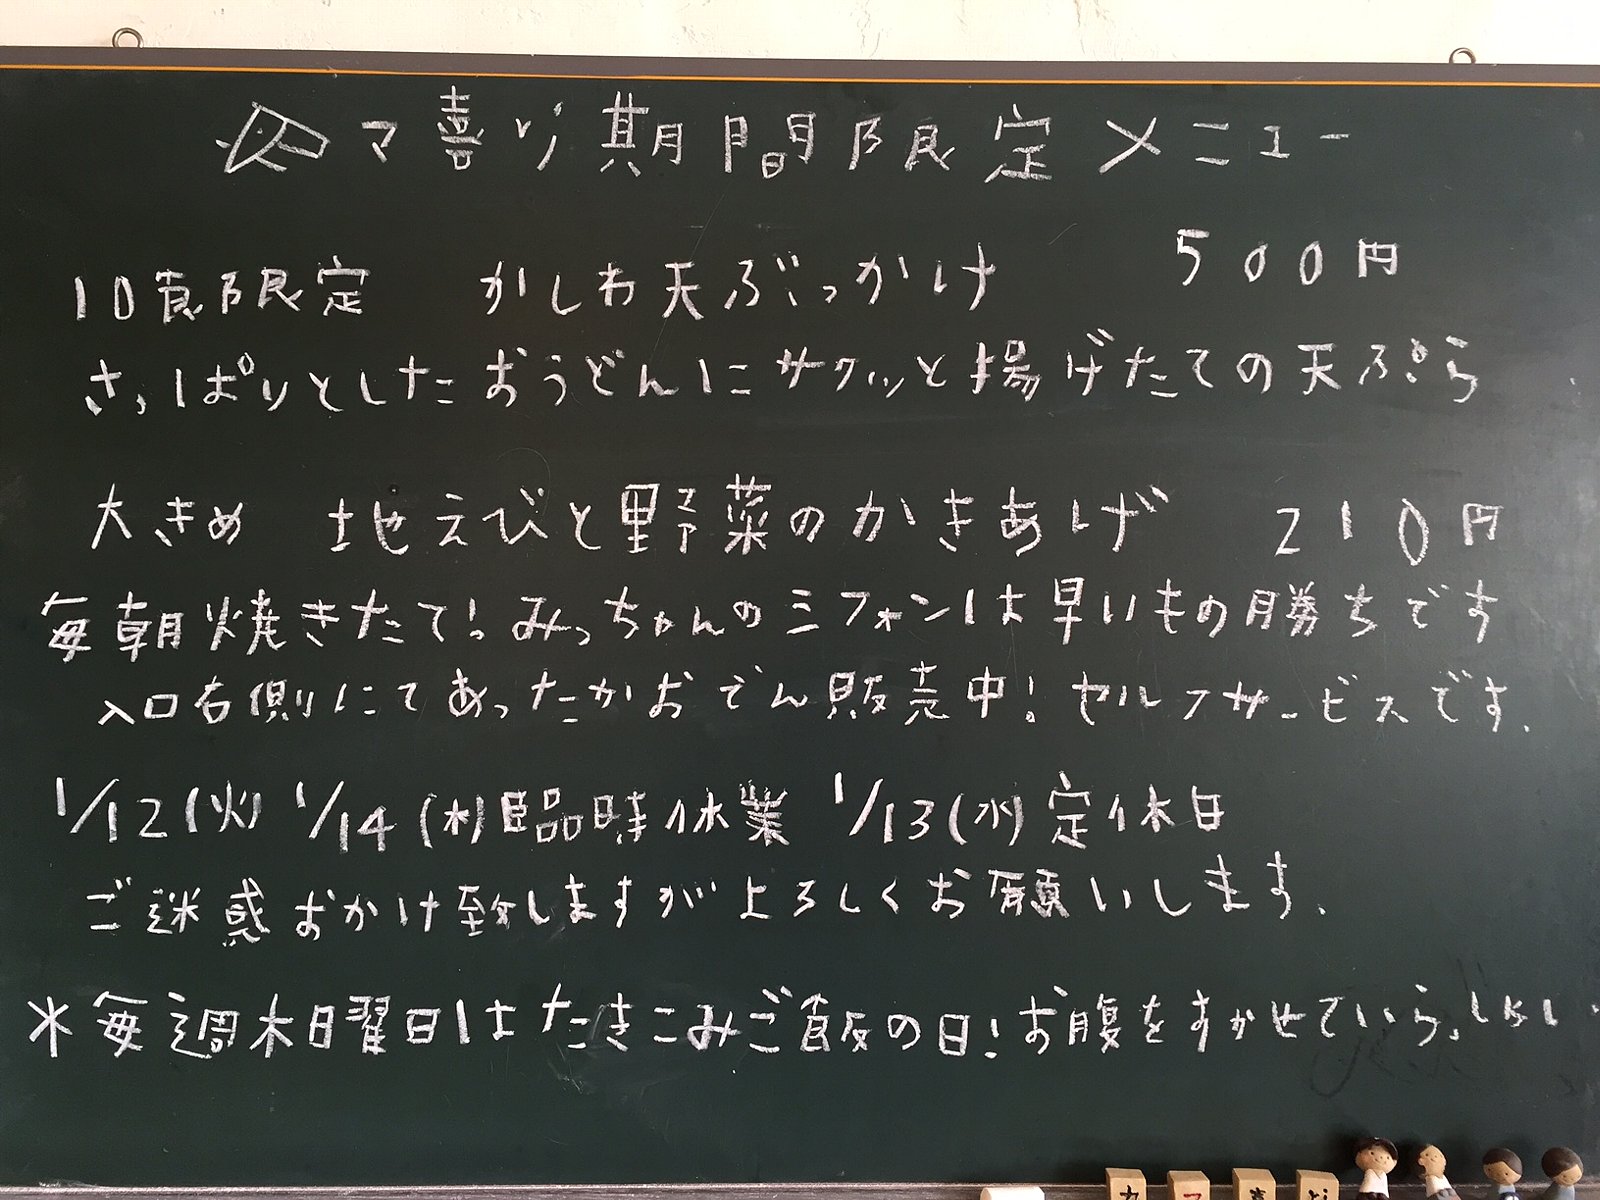 カマ喜リ期間限定メニュー
10食限定　かしわ天ぶっかけ　500円
さっぱりとしたおうどんにサクッと揚げたての天ぷら
大きめ　地えびと野菜のかきあげ　210円
毎朝焼きたて!みっちゃんのミフォンは早いもの勝ちです
入口右側にてあったかおでん販売中!セルフサービスです.
1/12(火) 1/14(木)臨時休業 1/13(水)定休日
ご迷惑おかけ致しますが よろしくお願いします.
*毎週木曜日はたきこみご飯の日!お腹をすかせていらっしゃい
カマ喜ど